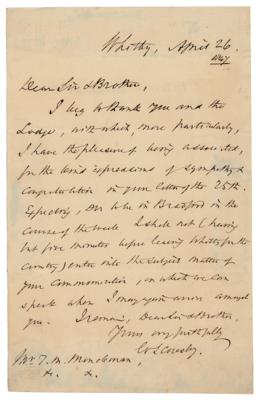 Whitby, April 26
1847
Dear Sir & Brother,
I beg to thank you and the
Lodge, with which, more particularly,
I have the pleasure of being associated,
for the kind expressions of sympathy &
congratulation in your letter of the 25th.
Expecting, to be in Bradford in the
course of the week I shall not (having
but five minutes before leaving Whitby for the
country) enter into the subject matter of
your communication, on which we can
speak when I may again among
you. I remain, Dear Sir & Brother,
Yours very faithfully
Mr T. M.
&c. &c.